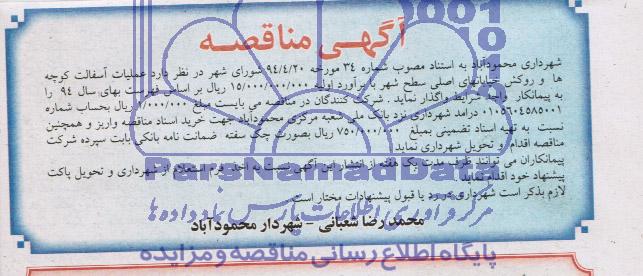 آگهی مناقصه
شهرداری محمودآباد به استناد مصوب شماره ۳۴ مورخه ۹۴/۴/۲۰ شورای شهر در نظر دارد عملیات آسفالت کوچه
ها و روکش خیابانهای اصلی سطح شهر با برآورد اولیه ۱۵/۰۰۰/۰۰۰/۰۰۰ ریال بر اساس فهرست بهای سال ۹۴ را
به پیمانکار واجد شرایط واگذار نماید. شرکت کنندگان در مناقصه می بایست مبلغ ۱/۰۰۰/۰۰۰ ریال بحساب شماره
۰۱۰۵۶۰۴۵۸۵۰۰۱ درآمد شهرداری نزد بانک ملی شعبه مرکزی محمودآباد جهت خرید اسناد مناقصه واریز و همچنین
نسبت به تهیه اسناد تضمینی بمبلغ ۷۵۰/۰۰۰/۰۰۰ ریال بصورت چک سفته ضمانت نامه بانکی بابت سپرده شرکت
مناقصه اقدام و تحویل شهرداری نماید
پیمانکاران می توانند ظرف مدت یک هفته از انتشار این آگهی نسبت به اخذ فرم استعلام از شهرداری و تحویل پاکت
پیشنهاد خود اقدام نماید
لازم بذکر است شهرداری در رد یا قبول پیشنهادات مختار است
محمدرضا شعبانی - شهردار محمودآباد
ParsNamadData
مرکز فرآوری اطلاعات پارس نماد داده ها
پایگاه اطلاع رسانی مناقصه و مزایده